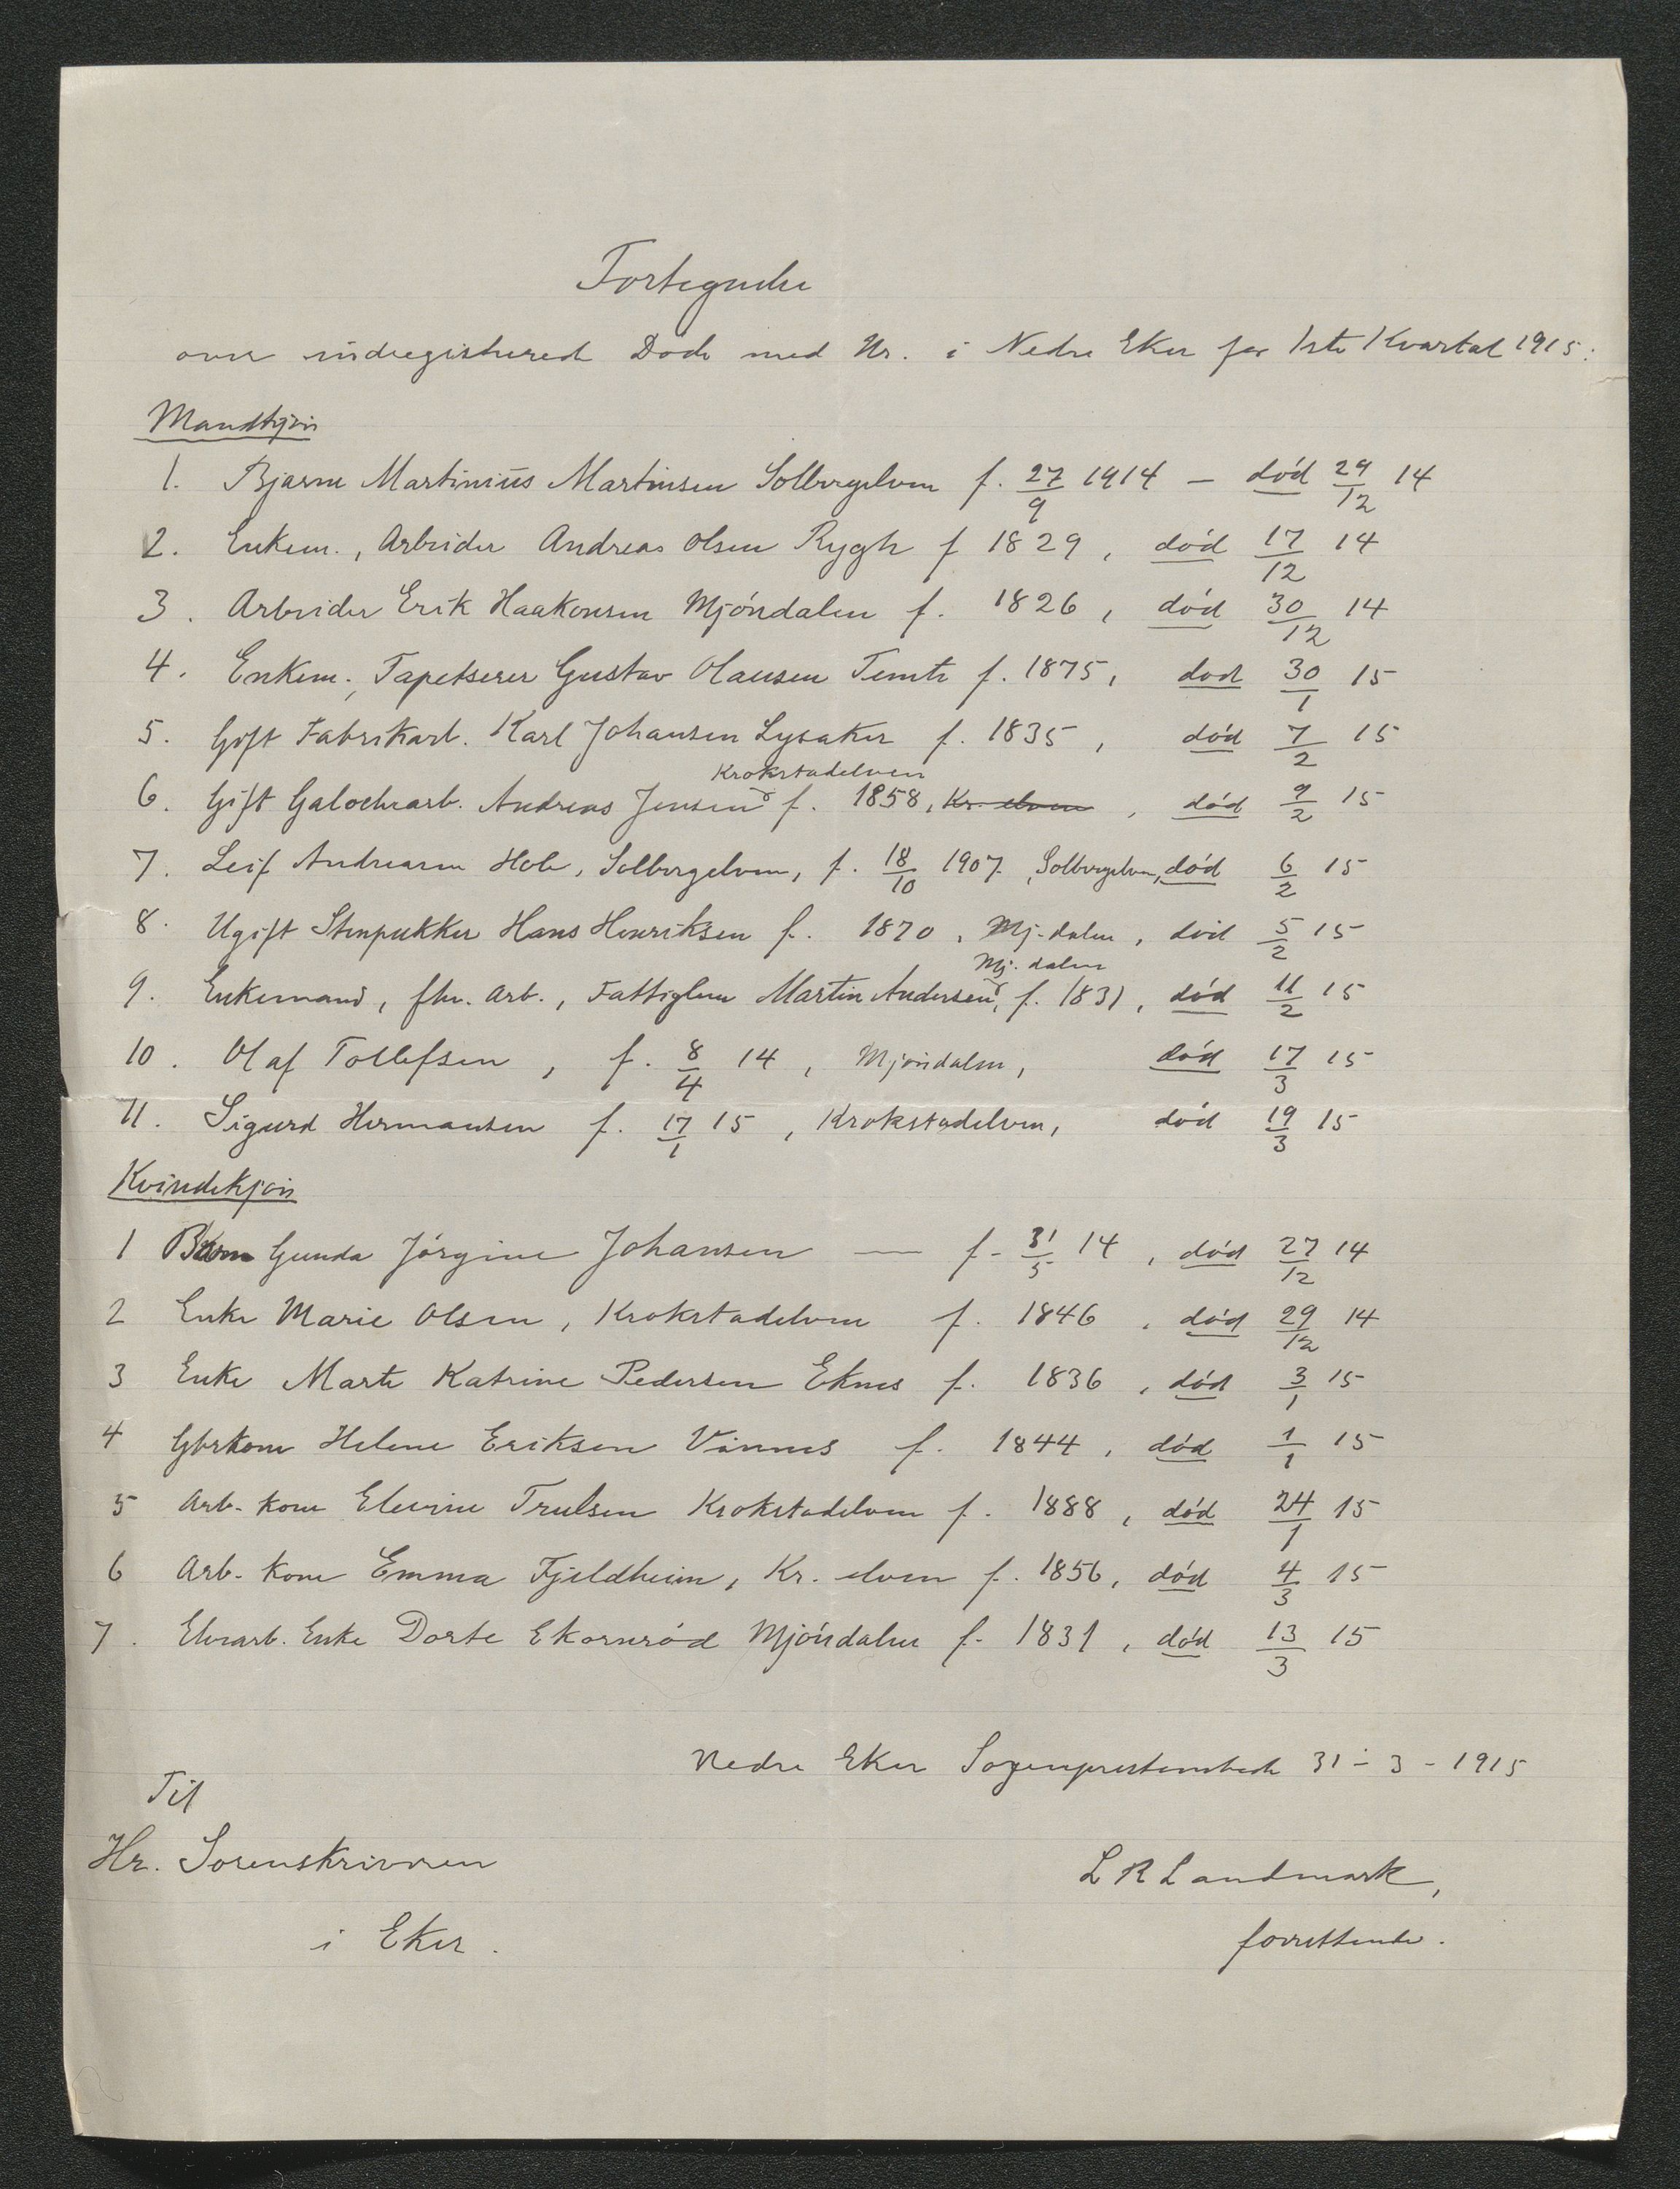 Fortegnelse
over indregistrerede Døde med Nr. i Nedre Eker for 1ste Kvartal 1915.
Mandkjøn
1. Bjarne Martinius Martinsen Solbergelven f. 27/9 1914 – død 29/12 14
2. Enkem., Arbeider Andreas Olsen Rygh f 1829, død 17/12 14
3. Arbeider Erik Haakonsen Mjøndalen f. 1826, død 30/12 14
4. Enkem., Tapetserer Gustav Olausen Temte f. 1875, død 30/1 15
5. Gift Fabrikarb. Karl Johansen Lysaker f. 1835, død 7/2 15
Krokstadelven
6. Gift Galocharb. Andreas Jensen f. 1858, Kr. elven, død 9/2 15
7. Leif Andreasen Hole, Solbergelven, f. 18/10 1907, Solbergelven, død 6/2 15
8. Ugift Stenpukker Hans Henriksen f. 1870, Mj-dalen, død 5/2 15
Mj. dalen
9. Enkemand, fhv. Arb., Fattiglem Martin Andersen, f. 1831, død 11/2 15
10. Olaf Tollefsen, f. 8/4 14, Mjøndalen, død 17/3 15
11. Sigurd Hermansen f. 17/1 15, Krokstadelven, død 19/3 15
Kvindekjøn
1 Barn Gunda Jørgine Johansen — f. 31/5 14, død 27/12 14
2 Enke Marie Olsen, Krokstadelven f. 1846, død 29/12 14
3 Enke Marte Katrine Pedersen Eknes f. 1836, død 3/1 15
4 Gbrkone Helene Eriksen Vinnes f. 1844, død 1/1 15
5 Arb- kone Elevine Trulsen Krokstadelven f. 1888, død 24/1 15
6 Arb- kone Emma Fjeldheim, Kr. elven f. 1856, død 4/3 15
7. Elvearb. Enke Dorte Ekornrød Mjøndalen f. 1831, død 13/3 15
Nedre Eker Sogneprestembede 31 - 3 - 1915
Til
Hr. Sorenskriveren
i Eker.
L R Landmark,
forrettende.